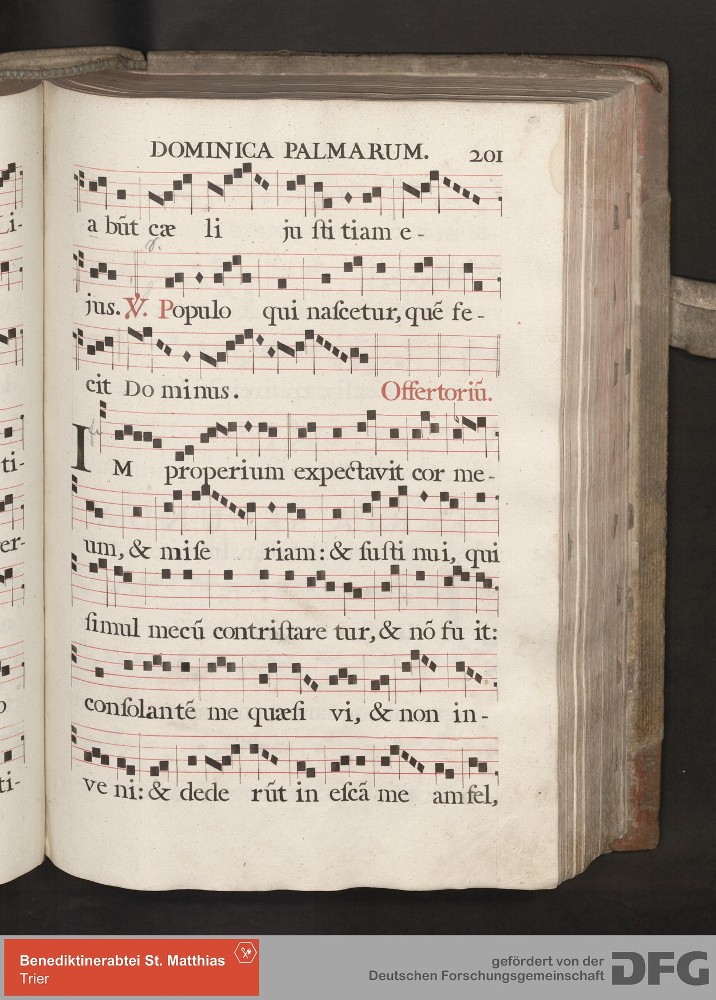 DOMINICA PALMARUM. 201
a bũt cæ li ju ſti tiam e -
jus. ℣. Populo qui naſcetur, quẽ fe -
cit Do minus. Offertoriũ.
IM properium expectavit cor me -
um, & miſe riam: & ſuſti nui, qui
ſimul mecũ contriſtare tur, & nõ fu it:
conſolantẽ me quæſi vi, & non in -
ve ni: & dede rũt in eſcã me am fel,
Li-
ti-
er-
o
ti-
Benediktinerabtei St. Matthias
Trier
gefördert von der
Deutschen Forschungsgemeinschaft
DFG